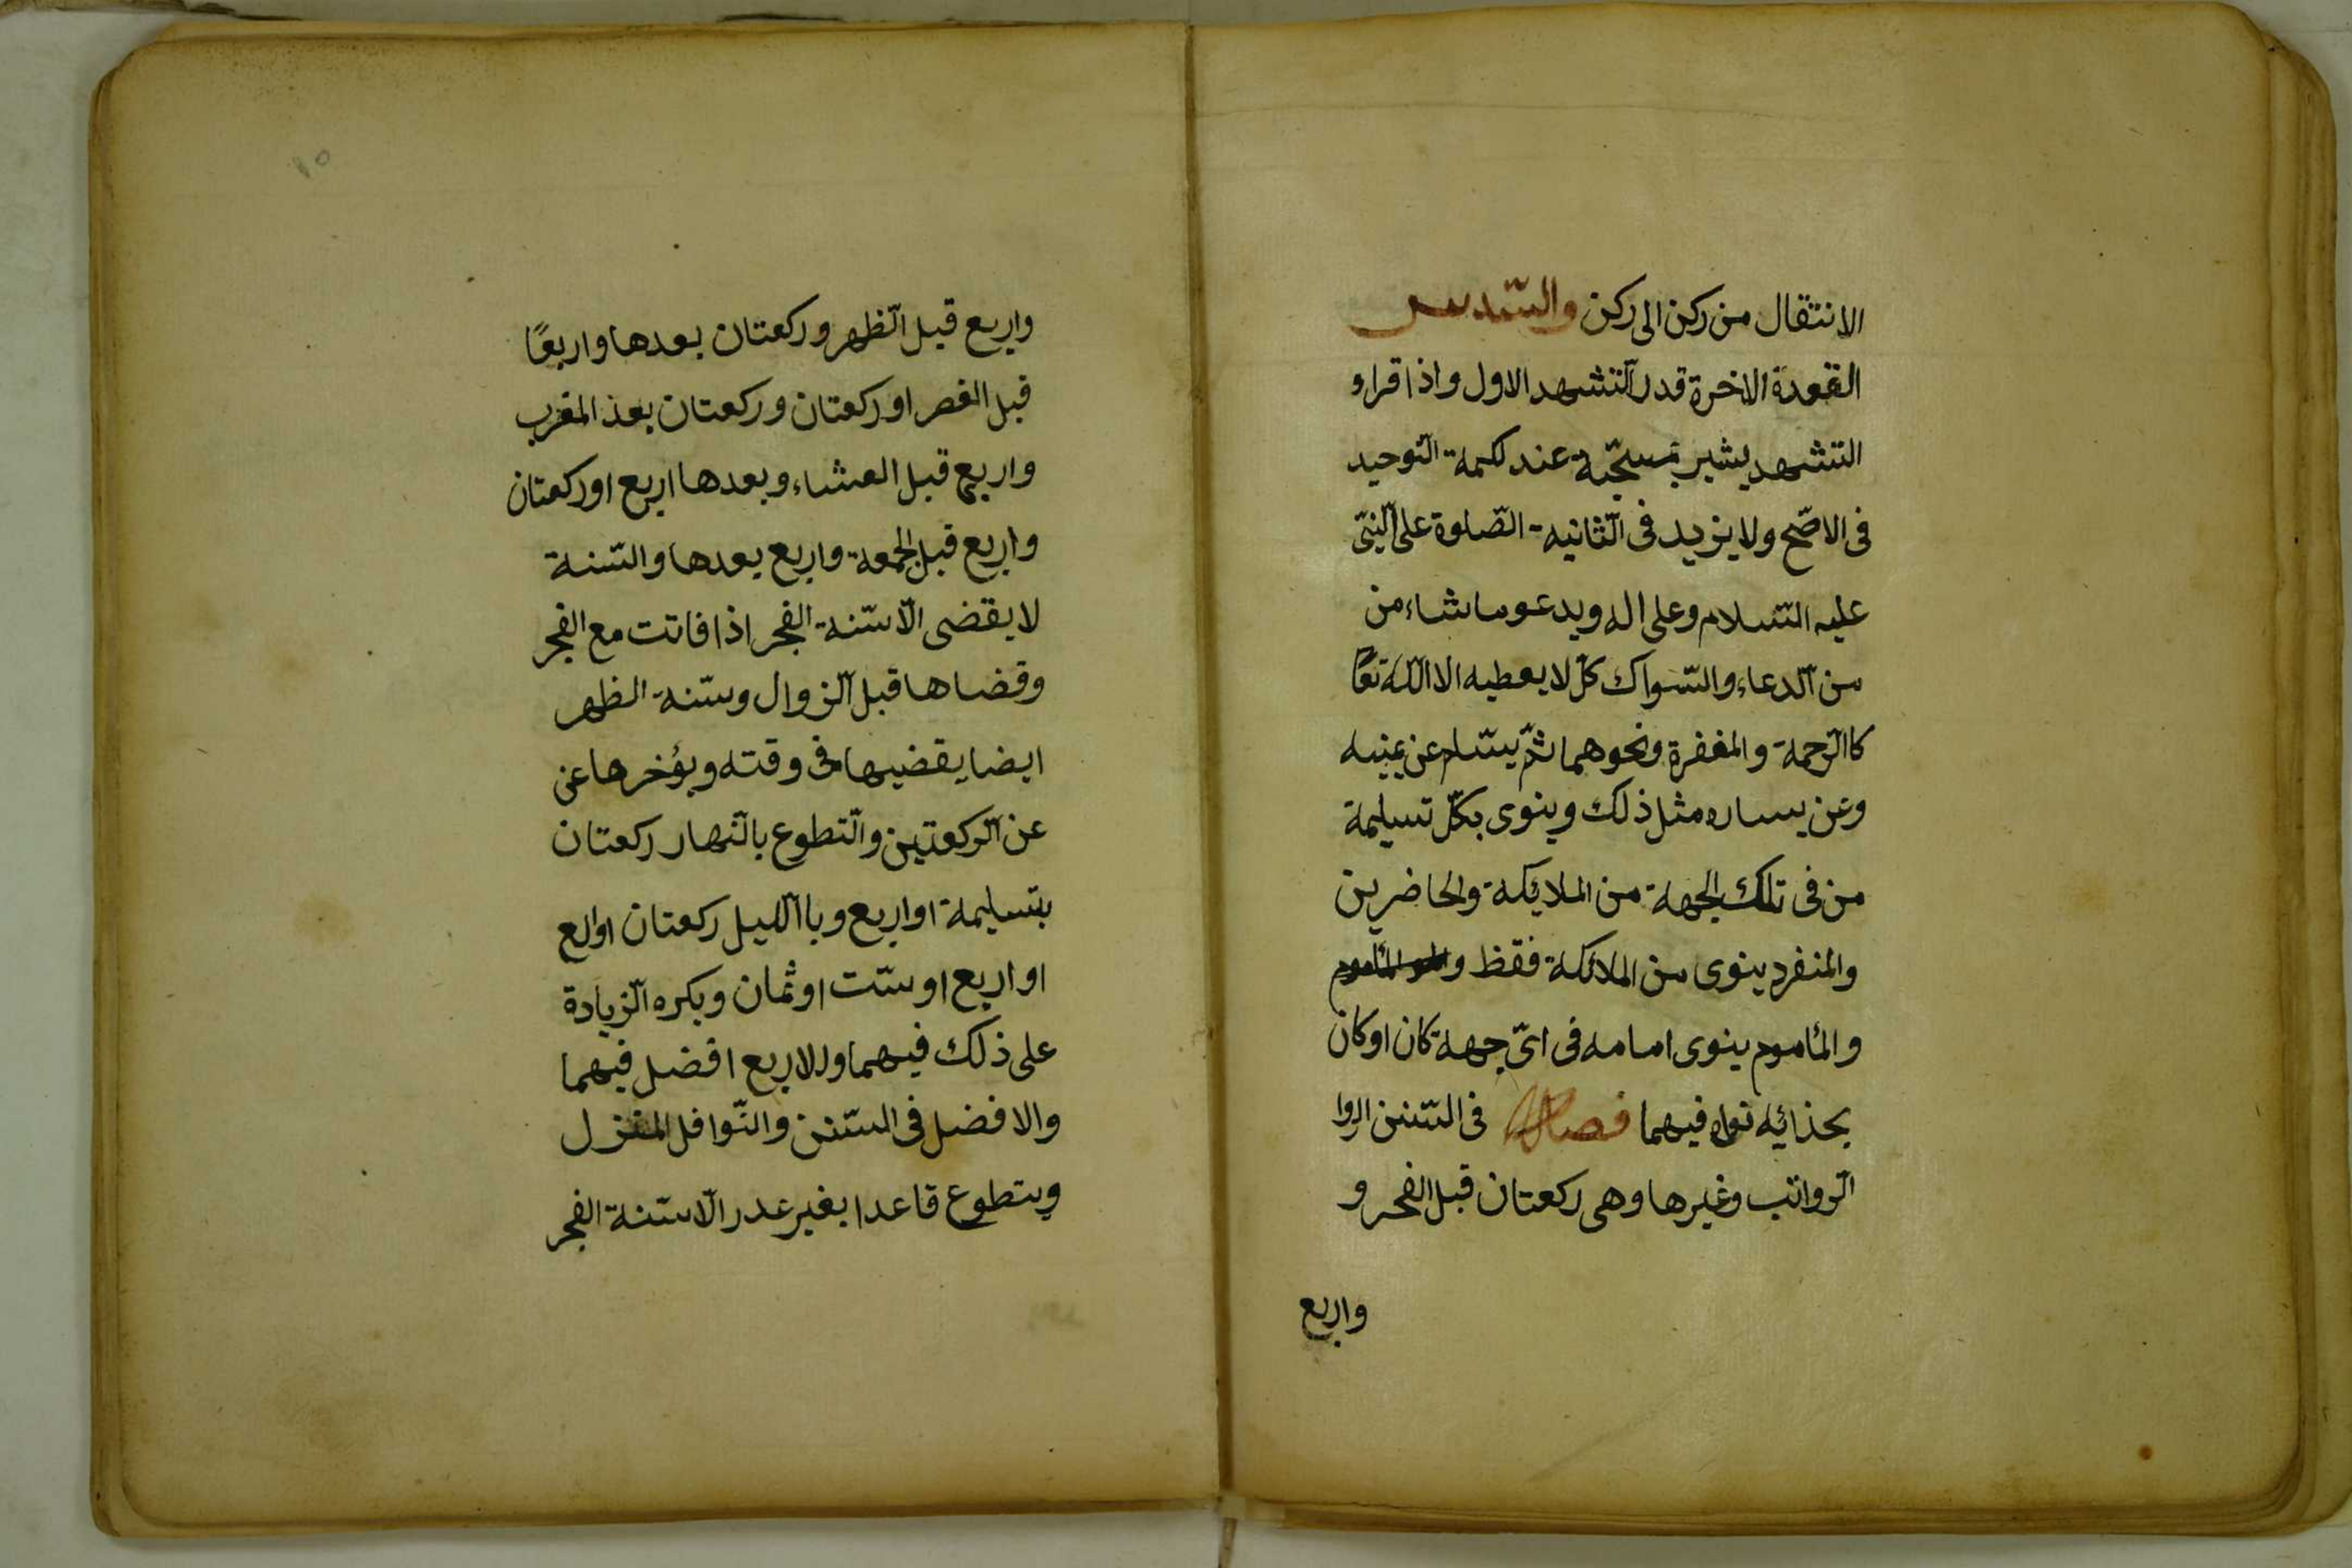 الانتقال من ركن الى ركن والسّدس
القعدة الاخرة قدر التّشهد الاول واذا قراء
التشهد يشير بمسبّحة عند كلمة التّوحيد
فى الاصّح ولا يزيد فى الثّانية الصّلوة على النّبىّ
عليه السّلام وعلى اله ويدعو ما شاء من
من الدّعاء والسّواك كلّ لا يعطيه الا اللّه تعًا
كا الرّحمة والمغفرة ونحوهما ثمّ يسّلم عن يمينه
وعن يساره مثل ذلك وينوى بكلّ تسليمة
من فى تلك الجهة من الملايكة والحاضرين
والمنفرد ينوى من الملائكة فقظ والمأموم
والمأموم ينوى امامه فى اىّ جهة كان او كان
بحذائه نواه فيهما فصل فى السّنن الروا
الرّواتب وغيرها وهى ركعتان قبل الفجر و
واربع
١٥
واربع قبل الظّهر وركعتان بعدها واربعًا
قبل العصر او ركعتان وركعتان بعد المغرب
واربع قبل العشاء وبعدها اربع او ركعتان
واربع قبل الجمعة واربع بعدها والسّنة
لا يقضى الّا سّنة الفجر اذا فاتت مع الفجر
وقضاها قبل الزّوال وسّنة الظهر
ايضا يقضيها فى وقته ويؤخرها عن
عن الرّكعتين والتّطوع بالنّهار ركعتان
بتسليمة او اربع وبا اللّيل ركعتان اوابع
او اربع او ستّ او ثمان ويكره الزّيادة
على ذلك فيهما والاربع افضل فيهما
والافضل فى السّنن والنّوافل المنزل
ويتطوع قاعدا بغير عدر الّا سّنة الفجر